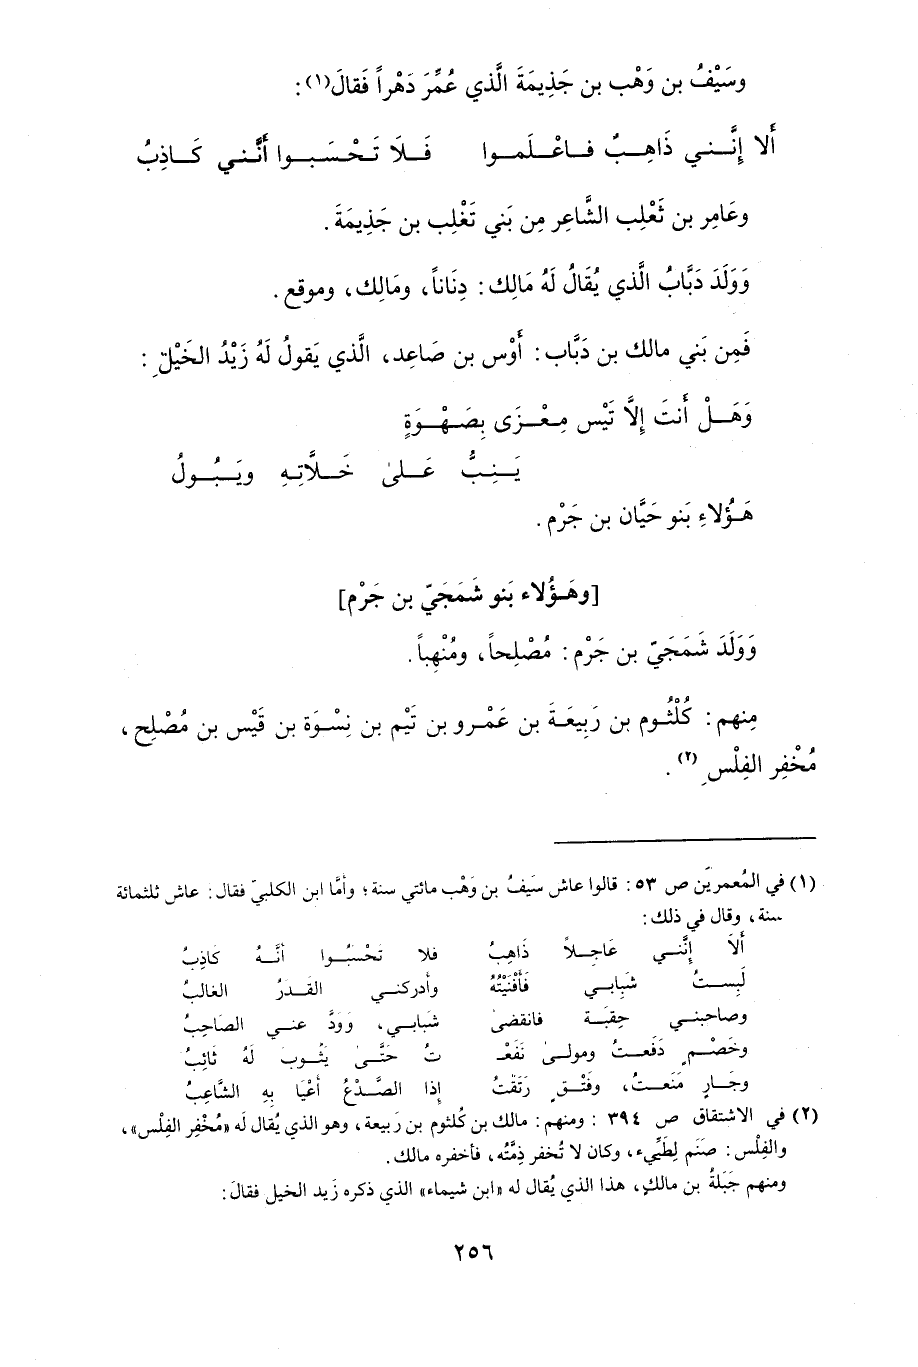 وسَيْفُ بن وَهْب بن جَذِيمَةَ الَّذي عُمِّرَ دَهْراً فَقالَ(١) :
ألا إنَّـنـي ذَاهِـبٌ فـاعْـلَمـوا فَـلَا تَـحْسَـبـوا أنَّـنـي كَـاذِبُ
وعَامِر بن ثَعْلِب الشَّاعِر مِن بَني تَغْلِب بن جَذِيمَةَ .
وَوَلَدَ دَبَّابُ الَّذي يُقَالُ لَهُ مَالِك : دِنَاناً ، ومَالِك ، وموقع .
فَمِن بَني مالك بن دَبَّاب : أوْس بن صَاعِد ، الَّذي يَقولُ لَهُ زَيْدُ الخَيْلِ :
وَهَـلْ أنتَ إلاَّ تَيْس مِـعْـزَى بِصَـهْـوَةٍ
يَـنِـبُّ عَـلىٰ خَـلاَّتِـهِ ويَـبُـولُ
هَـؤُلاءِ بَنو حَيَّان بن جَرْم .
[وهَـؤُلاء بَنو شَمَجَيّ بن جَرْم]
وَوَلَدَ شَمَجَيّ بن جَرْم : مُصْلِحاً ، ومُنْهِباً .
مِنهم : كُلْثُوم بن رَبِيعَـة بن عَمْـرو بن تَيْم بن نِسْـوَة بن قَيْس بن مُصْلِح ،
مُخْفِر الفِلْسِ (٢) .
(١) في المُعمرين ص ٥٣ : قالوا عاش سَيفُ بن وَهْب مائتي سنة ؛ وأمَّا ابن الكلبيّ فقال : عاش ثلثمائة
سنة ، وقال في ذلك :
ألاَ إنَّـنـي عَـاجِـلاً ذَاهِـبُ فلا تحْسَبُـوا أنَّـهُ كَاذِبُ
لَبِسْـتُ شَبَابـي فَأفْنَيْتُهُ وأدركنـي القَـدرُ الغالبُ
وصاحبنـي حِقْبَـة فانقضى شَبابـي ، وَوَدَّ عنـي الصاحِبُ
وخَصْـمٍ دَفَعـتُ ومولـىً نَفَعْـ ـتُ حَتَّـىٰ يَثُـوبَ لَهُ ثائِبُ
وجَـارٍ مَنَعـتُ ، وفَتْـقٍ رَتَقْتُ إذا الصَّدْعُ أعْيَا بِهِ الشَّاعِبُ
(٢) في الاشتقاق ص ٣٩٤ : ومنهم : مالك بن كُلثوم بن رَبيعة ، وهو الذي يُقال له «مُخْفِر الفِلْس» ،
والفِلْس : صَنَم لِطَيِّيء ، وكان لا تُخفر ذِمَّتُه ، فأخفره مالك .
ومنهم جَبَلةُ بن مالكٍ ، هذا الذي يُقال له «ابن شيماء» الذي ذكره زَيد الخيل فقالَ :
٢٥٦